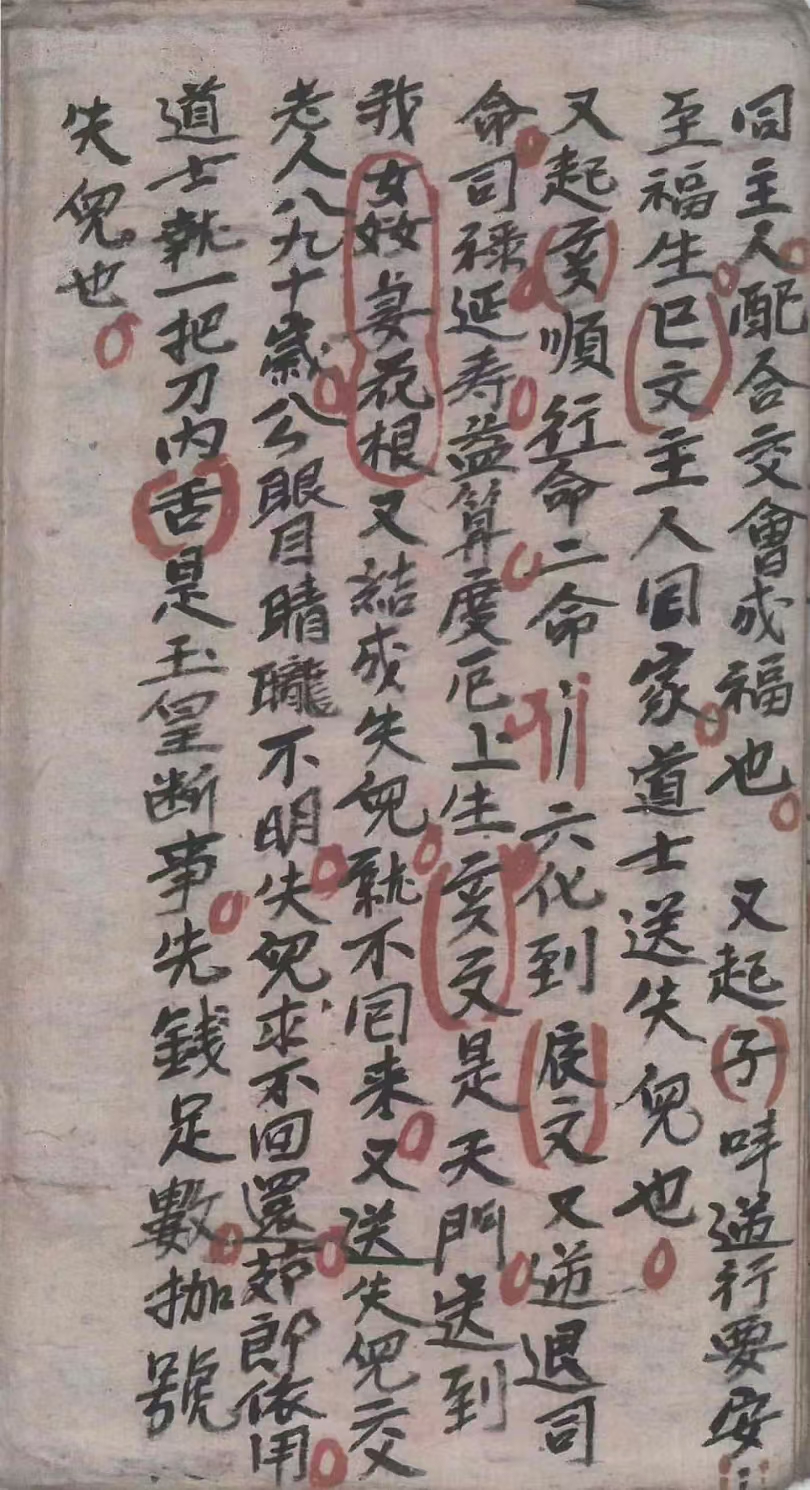 回主人配合交會成福也 又起子吽逆行要安
至福生巳文主人回家道士送失兒也
又起亥順行命二命引六化到辰文又逆退司
命司祿延寿益算度厄上生亥文是天門送到
我女姣妻花根又結成失兒就不回来又送失兒交
老人八九十歲公眼目睛矓不明失兒求不回還茆郎依用
道士執一把刀內舌是玉皇断事先錢足數抛號
失兒也